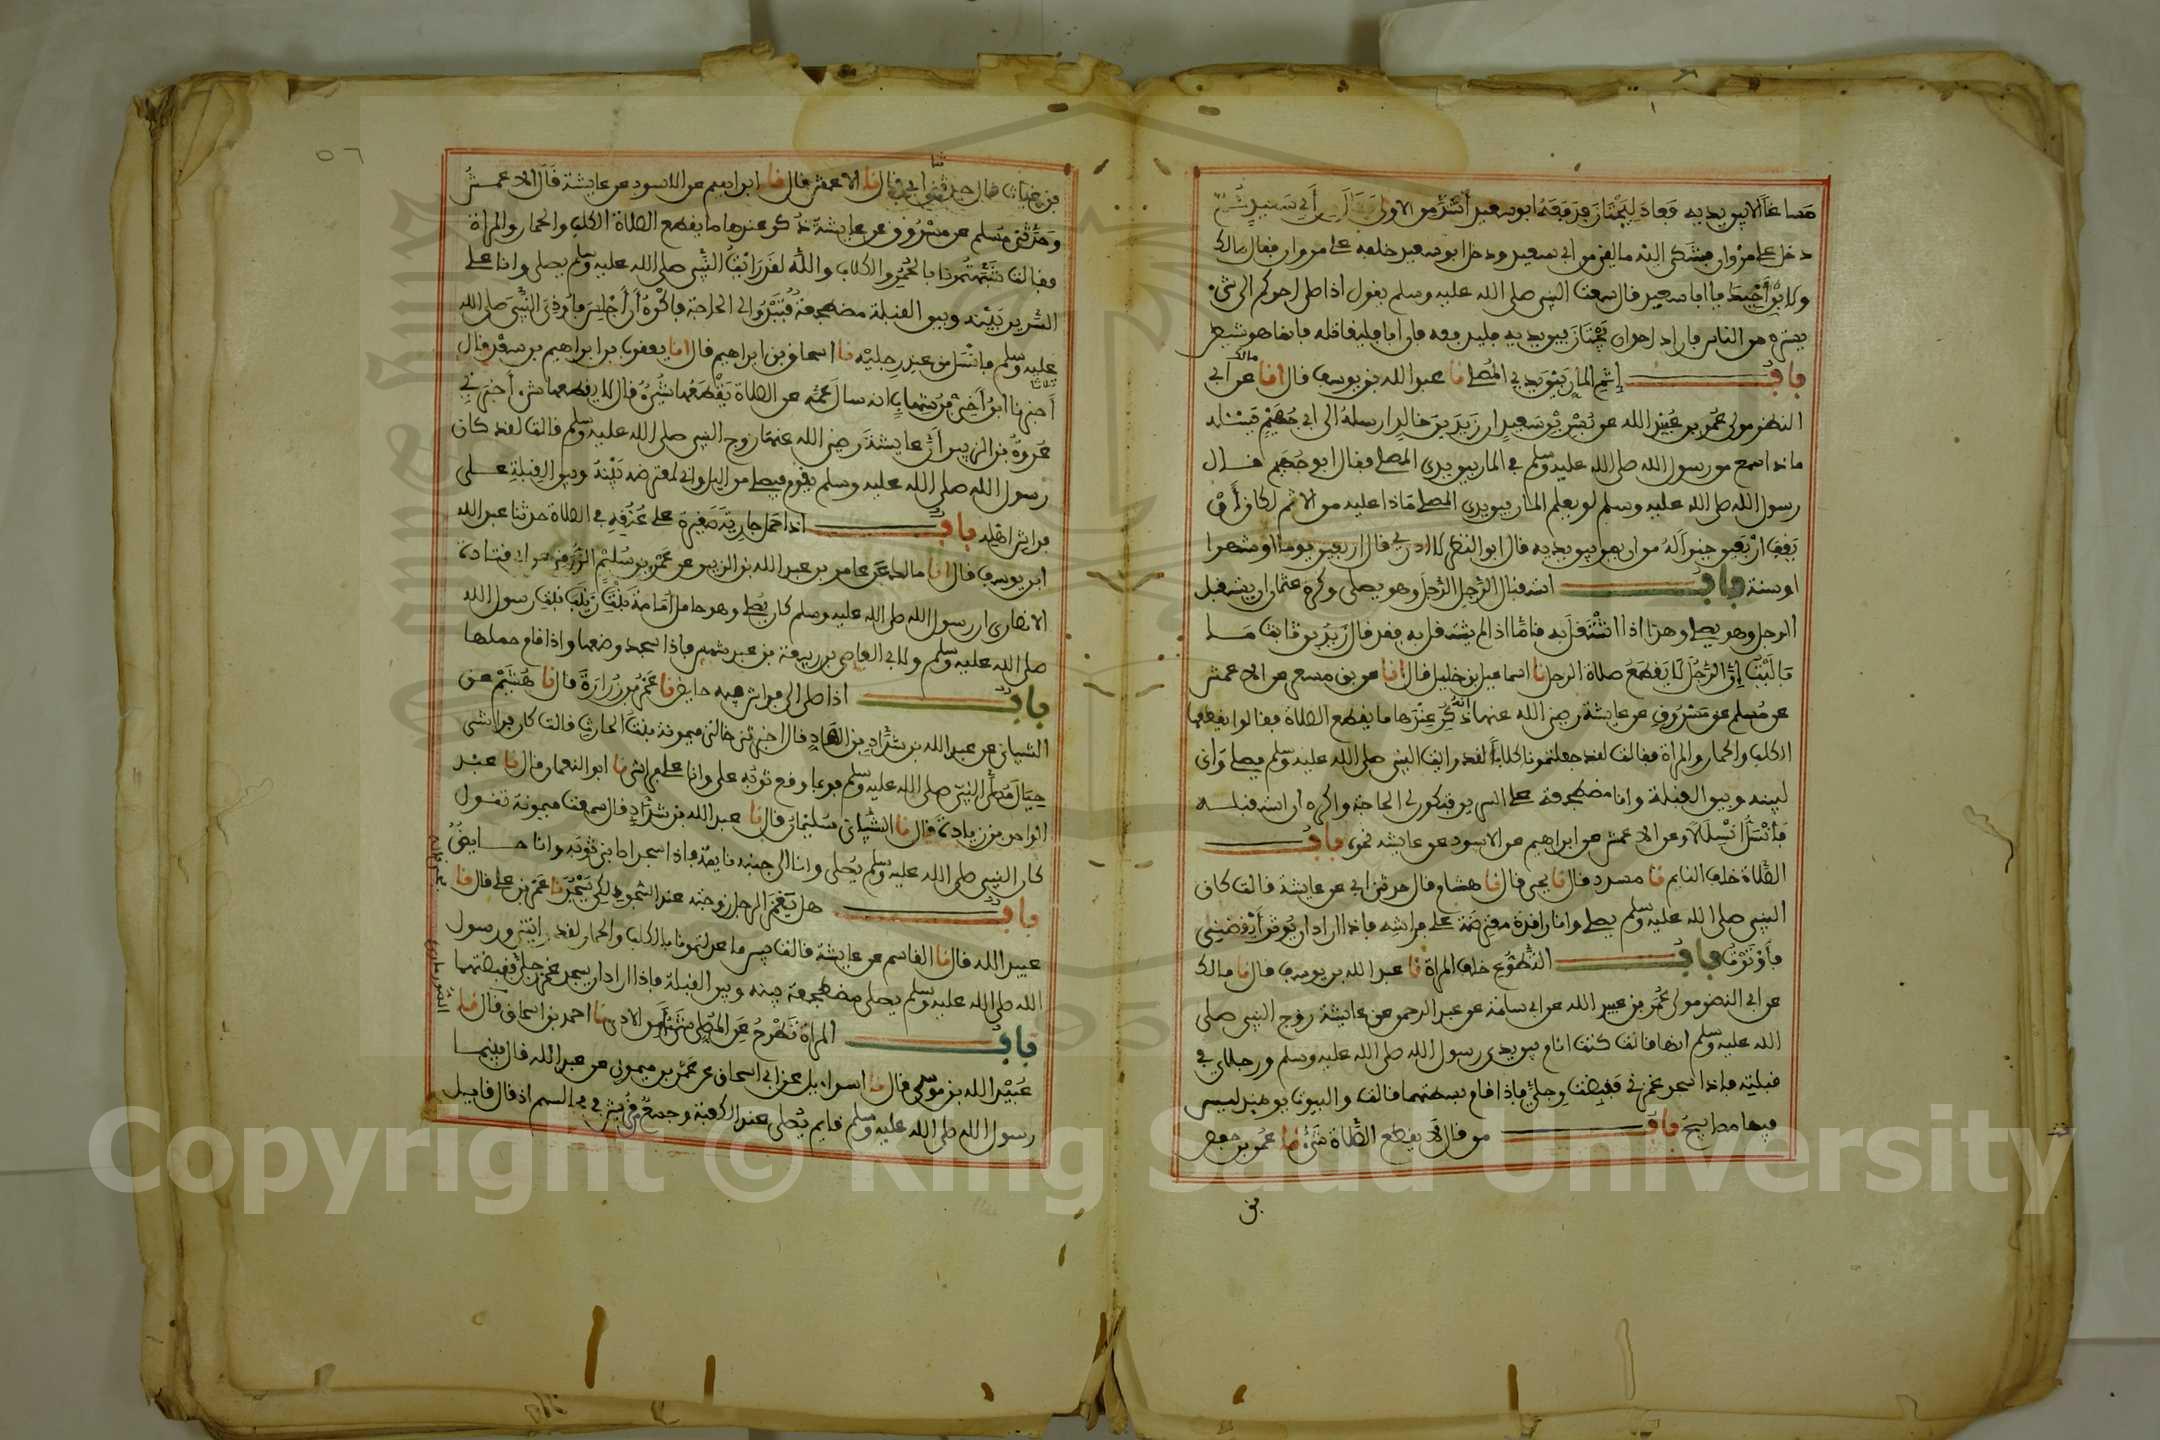 مساغا الا بين يديه فعاد ليجتاز فدفعه ابو سعيد أشد من الاولى فنال من أبي سعيد ثم
دخل على مروان فشكى اليه ما لقي من ابي سعيد ودخل ابو سعيد خلفه على مروان فقال مالك
ولابن أخيك يا ابا سعيد قال سمعت النبي صلى الله عليه وسلم يقول اذا صلى احدكم الى شيء
يستره من الناس فاراد احد ان يجتاز بين يديه فليدفعه فان ابا فليقاتله فانما هو شيطن
باب إثم المار بين يدي المصلي نا عبد الله بن يوسف قال انا مالك عن ابي
النضر مولى عمر بن عبيد الله عن بسر بن سعيد ان زيد بن خالد ارسله الى ابي جهيم يسئله
ماذا سمع من رسول الله صلى الله عليه وسلم في المار بين يدي المصلي فقال ابو جهيم قال
رسول الله صلى الله عليه وسلم لو يعلم المار بين يدي المصلي ماذا عليه من الاثم لكان أن
يقف اربعين خيرا له من ان يمر بين يديه قال ابو النضر لا ادري قال اربعين يوما او شهرا
او سنة باب استقبال الرجل الرجل وهو يصلي وكره عثمان ان يستقبل
الرجل وهو يصلي وهذا اذا اشتغل به فاما اذا لم يشتغل به فقد قال زيد بن ثابت ما
باليت إن الرجل لا يقطع صلاة الرجل نا اسماعيل بن خليل قال انا علي بن مسهر عن الاعمش
عن مسلم عن مسروق عن عايشة رضي الله عنها انه ذكر عندها ما يقطع الصلاة فقالوا يقطعها
الكلب والحمار والمراة فقالت لقد جعلتمونا كلابا لقد رايت النبي صلى الله عليه وسلم يصلي وإني
لبينه وبين القبلة وانا مضطجعة على السرير فتكون لي الحاجة واكره ان استقبله
فأنسل انسلالا وعن الاعمش عن ابراهيم عن الاسود عن عايشة نحوه باب
الصلاة خلف النايم نا مسدد قال نا يحيى قال نا هشام قال حدثني ابي عن عايشة قالت كان
النبي صلى الله عليه وسلم يصلي وانا راقدة معترضة على فراشه فاذا اراد ان يوتر أيقضني
فأوترت باب التطوع خلف المراة نا عبد الله بن يوسف قال نا مالك
عن ابي النضر مولى عمر بن عبيد الله عن ابي سلمة عن عبد الرحمن عن عايشة زوج النبي صلى
الله عليه وسلم انها قالت كنت انام بين يدي رسول الله صلى الله عليه وسلم ورجلاي في
قبلته فاذا سجد غمزني فقبضت رجلي فاذا قام بسطتهما قالت والبيوت يومئذ ليس
فيها مصابيح باب من قال لا يقطع الصلاة شيء نا عمر بن حفص
بن
بن غياث قال حدثني ابي قال نا الاعمش قال نا ابراهيم عن الاسود عن عايشة قال الاعمش
وحدثني مسلم عن مسروق عن عايشة ذكر عندها ما يقطع الصلاة الكلب والحمار والمراة
فقالت شبهتمونا بالحمر والكلاب والله لقد رايت النبي صلى الله عليه وسلم يصلي وانا على
السرير بينه وبين القبلة مضطجعة فتبدو الى الحاجة فاكره أن أجلس فاوذي النبي صلى الله
عليه وسلم فانسل من عند رجليه نا اسحاق بن ابراهيم قال انا يعقوب بن ابراهيم بن سعد قال
أخبرنا ابن أخي بن شهاب انه سال عمه عن الصلاة يقطعها شيء قال لا يقطعها شيء أخبرني
عروة بن الزبير أن عايشة رضي الله عنها زوج النبي صلى الله عليه وسلم قالت لقد كان
رسول الله صلى الله عليه وسلم يقوم فيصلي من الليل واني لمعترضه بينه وبين القبلة على
فراش اهله باب اذا حمل جارية صغيرة على عنقه في الصلاة حدثنا عبد الله
ابن يوسف قال انا مالك عن عامر بن عبد الله بن الزبير عن عمرو بن سليم الزرقي عن ابي قتادة
الانصاري ان رسول الله صلى الله عليه وسلم كان يصلي وهو حامل أمامة بنت زينب بنت رسول الله
صلى الله عليه وسلم ولابي العاص بن ربيعة بن عبد شمس فاذا سجد وضعها واذا قام حملها
باب اذا صلى الى فراش فيه حايض نا عمرو بن زرارة قال نا هشيم عن
الشيباني عن عبد الله بن شداد بن الهاد قال اخبرتني خالتي ميمونة بنت الحارث قالت كان فراشي
حيال مصلى النبي صلى الله عليه وسلم فربما وقع ثوبه علي وانا على فراشي نا ابو النعمان قال نا عبد
الواحد بن زياد قال نا الشيباني سليمان قال نا عبد الله بن شداد قال سمعت ميمونة تقول
كان النبي صلى الله عليه وسلم يصلي وانا الى جنبه نايمة فاذا سجد اصابني ثوبه وانا حايض
باب هل يغمز الرجل زوجته عند السجود لكي يسجد نا عمرو بن علي قال نا
عبيد الله قال نا القاسم عن عايشة قالت بيس ما عدلتمونا بالكلب والحمار لقد رايتني ورسول
الله صلى الله عليه وسلم يصلي مضطجعة بينه وبين القبلة فاذا اراد ان يسجد غمز رجلي فقبضتهما
باب المراة تطرح عن المصلي شيئا من الاذى نا احمد بن اسحاق قال نا
عبيد الله بن موسى قال نا اسرايل عن ابي اسحاق عن عمرو بن ميمون عن عبد الله قال بينما
رسول الله صلى الله عليه وسلم قايم يصلي عند الكعبة وجمع قريش في مجالسهم اذ قال قايل
Copyright © King Saud University